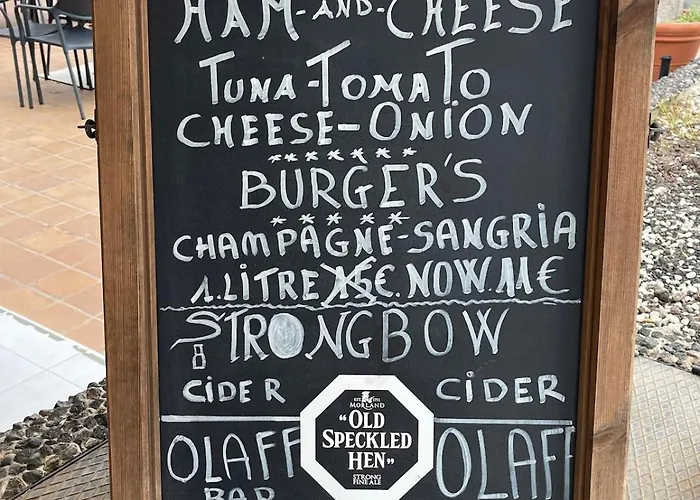 HAM-AND-CHEESE
TUNA-TOMATO
CHEESE-ONION
BURGER'S
CHAMPAGNE-SANGRIA
1.LITRE 15€. NOW. 11€
STRONGBOW
CIDER CIDER
MORLAND
"OLD
SPECKLED
HEN"
STRONG
FINE ALE
OLAFF OLAF
BAR